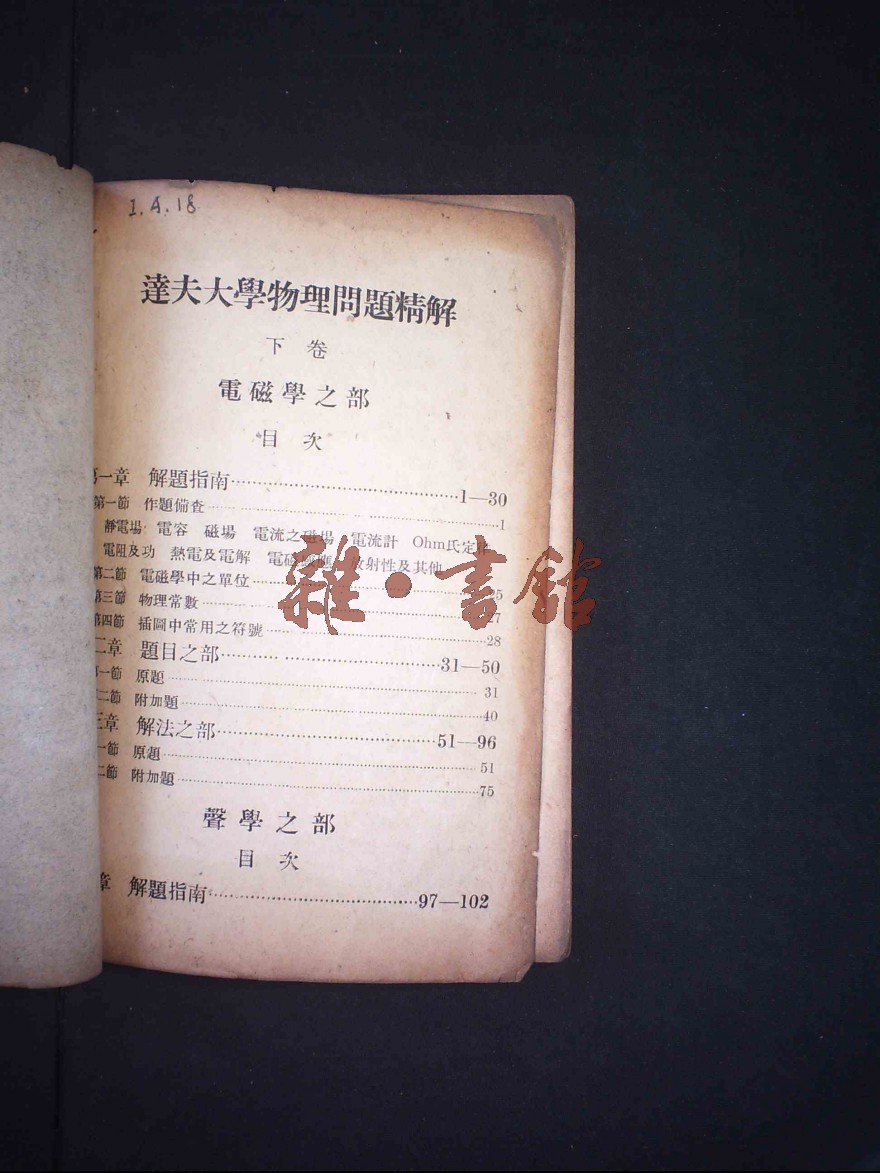 1.4.18
達夫大學物理問題精解
下卷
電磁學之部
目次
第一章 解題指南 1—30
第一節 作題備查 1
靜電場 電容 磁場 電流之磁場 電流計 Ohm氏定律
電阻及功 熱電及電解 電磁感應 放射性及其他
第二節 電磁學中之單位 25
第三節 物理常數 27
第四節 插圖中常用之符號 28
二章 題目之部 31—50
一節 原題 31
二節 附加題 40
三章 解法之部 51—96
一節 原題 51
二節 附加題 75
聲學之部
目次
章 解題指南 97—102
雜·書館